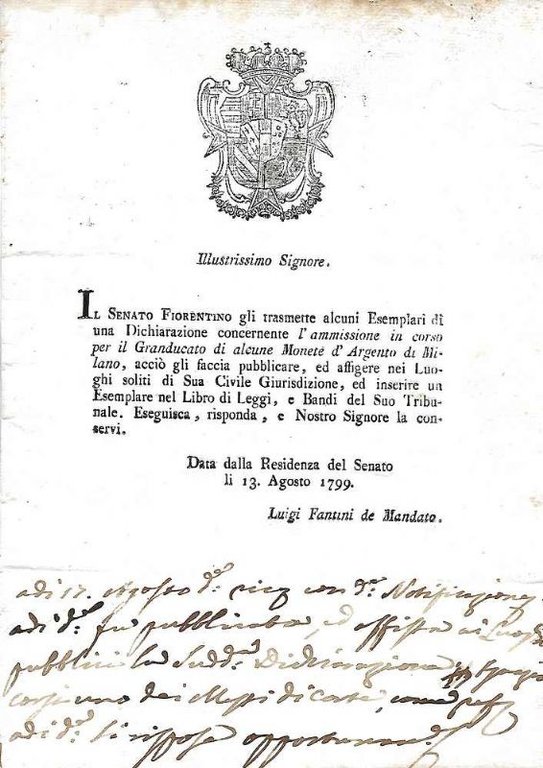 Illustrissimo Signore.
IL SENATO FIORENTINO gli trasmette alcuni Esemplari di
una Dichiarazione concernente l'ammissione in corso
per il Granducato di alcune Monete d'Argento di Mi-
lano, acciò gli faccia pubblicare, ed affigere nei Luo-
ghi soliti di Sua Civile Giurisdizione, ed inserire un
Esemplare nel Libro di Leggi, e Bandi del Suo Tribu-
nale. Eseguisca, risponda, e Nostro Signore la con-
servi.
Data dalla Residenza del Senato
li 13. Agosto 1799.
Luigi Fantini de Mandato.
adi 17. Agosto d.º con d.ª Notificazione
adi d.º fu pubblicata, ed affissa ai Luoghi
pubblici la Sudd.ª Dichiarazione
uno dei Messi di Corte, come
adi d.º si rispose